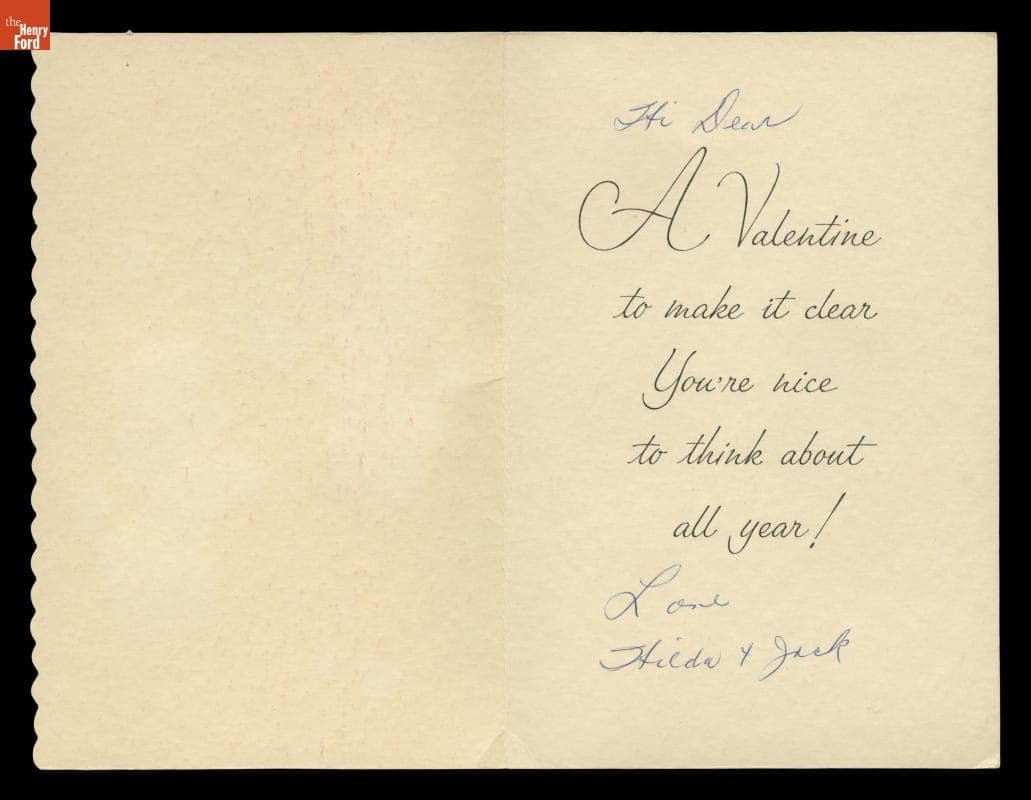 the
Henry
Ford
Hi Dear
A Valentine
to make it clear
You're nice
to think about
all year!
Love
Hilda & Jack